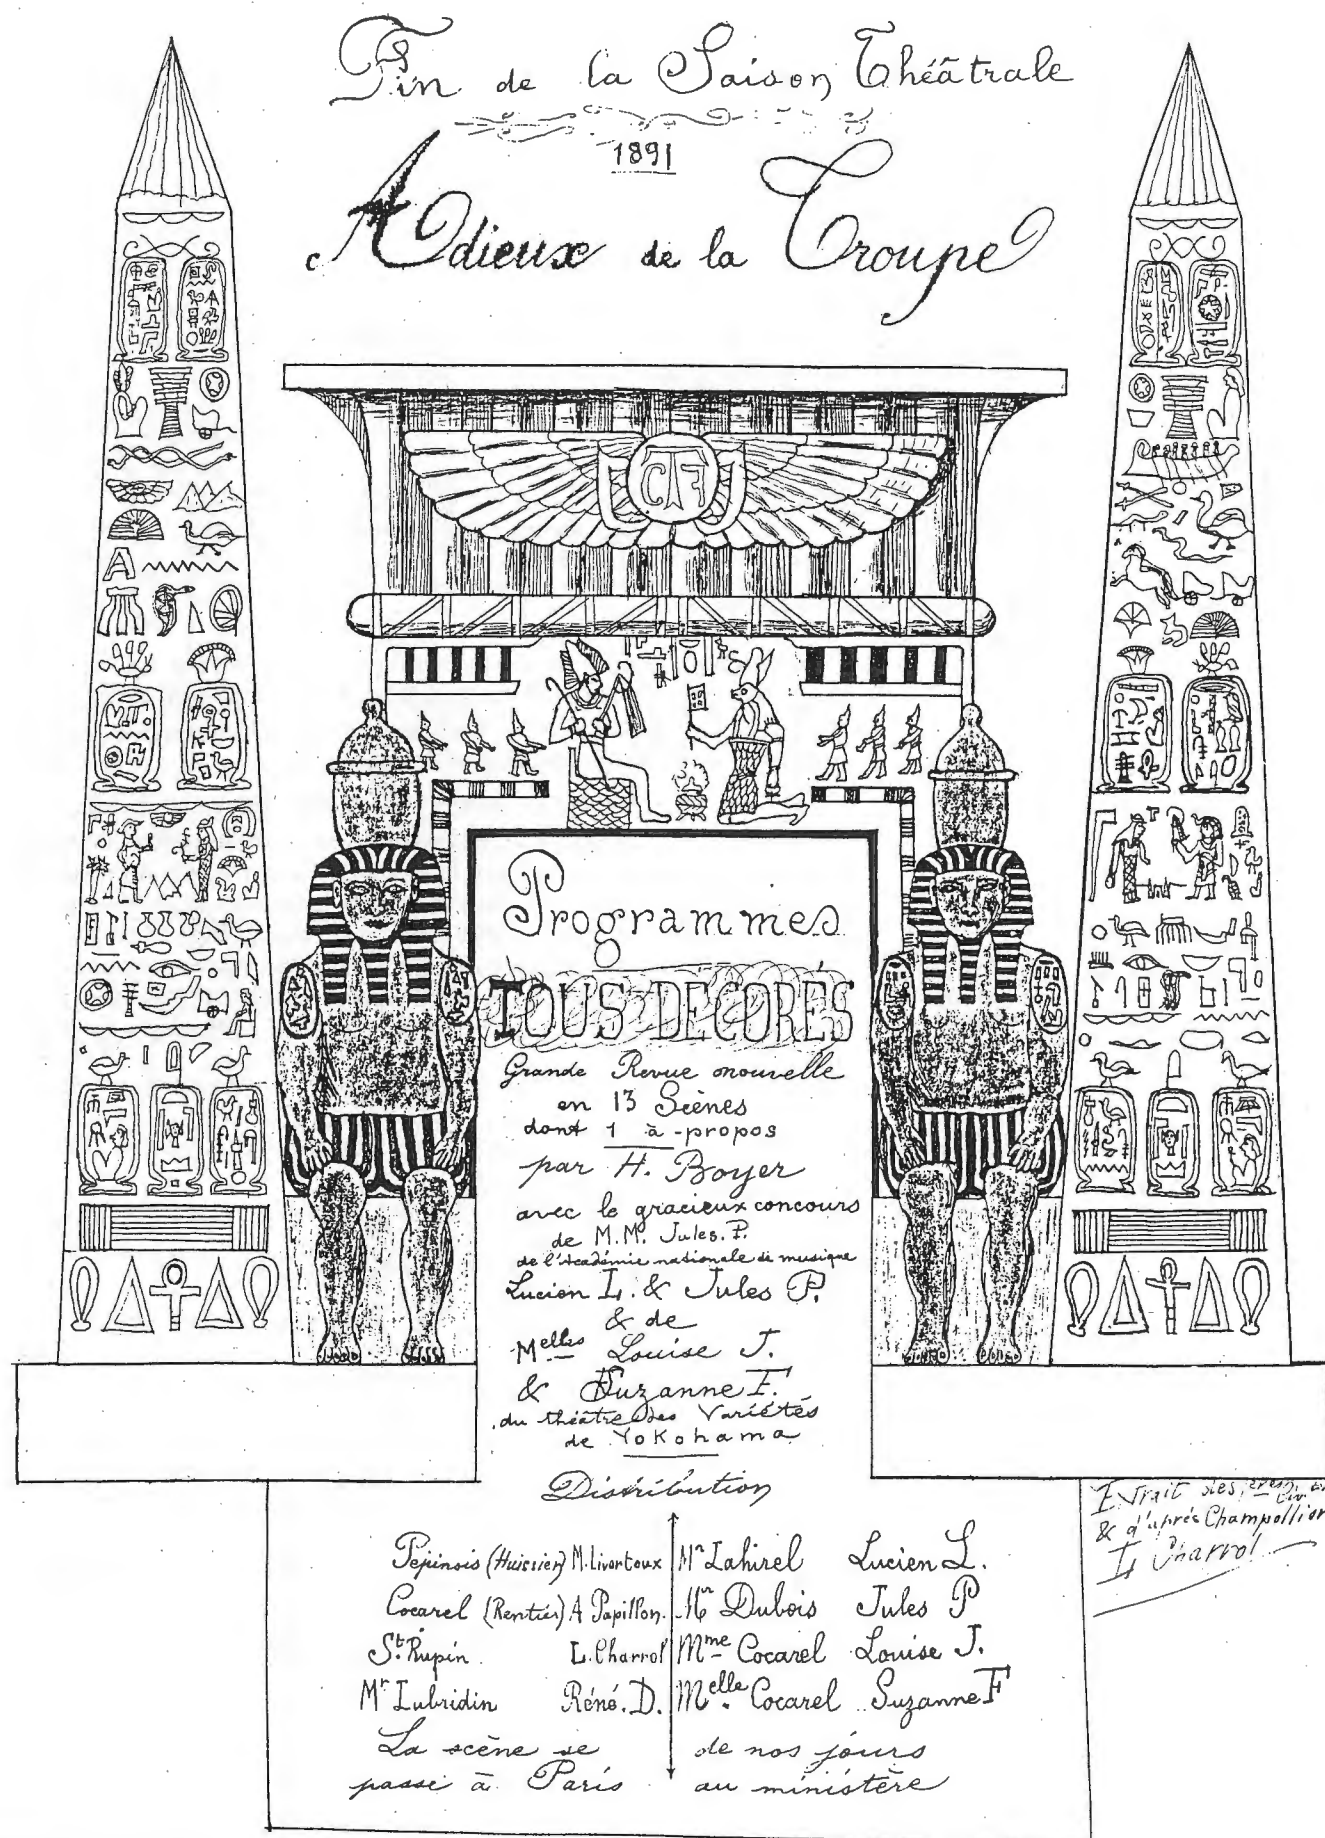 Fin de la Saison Théâtrale
1891
Adieux de la Troupe
CTF
Programmes
TOUS DECORÉS
Grande Revue nouvelle
en 13 Scènes
dont 1 à-propos
par H. Boyer
avec le gracieux concours
de M.M. Jules. P.
de l'Académie nationale de musique
Lucien L. & Jules P.
& de
Melles Louise J.
& Suzanne F.
du théâtre des Variétés
de Yokohama
Distribution
Pépinois (Huissier) M. Livertoux
Cocarel (Rentier) A Papillon.
St. Rupin L. Charrol
Mr Lubridin Réné. D.
La scène se
passe à Paris
Mr Lahirel Lucien L.
Mr Dubois Jules P
Mme Cocarel Louise J.
Melle Cocarel Suzanne F
de nos jours
au ministère
Extrait des
& d'après Champollion
L Charrol